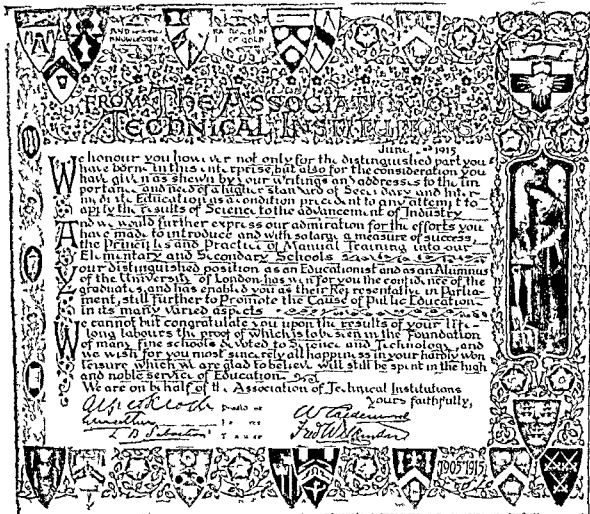 AND
KNOWLEDGE
FROM THE ASSOCIATION OF
TECHNICAL INSTITUTIONS
June 1915
We honour you however not only for the distinguished part you
have borne in this enterprise, but also for the consideration you
have given as shewn by your writings and addresses to the im
portance and need of a higher standard of Secondary and Inter
mediate Education as a condition precedent to any attempt to
apply the results of Science to the advancement of Industry
And we would further express our admiration for the efforts you
have made to introduce and with so large a measure of success,
the Principles and Practice of Manual Training into our
Elementary and Secondary Schools
Your distinguished position as an Educationist and as an Alumnus
of the University of London has won for you the confidence of the
graduates, and has enabled you as their Representative in Parlia-
ment, still further to Promote the Cause of Public Education
in its many varied aspects
We cannot but congratulate you upon the results of your life-
long labours the proof of which is to be seen in the Foundation
of many fine schools devoted to Science and Technology and
we wish for you most sincerely all happiness in your hardly won
leisure which we are glad to believe will still be spent in the high
and noble service of Education
We are on behalf of the Association of Technical Institutions
Yours faithfully,
1905-1915